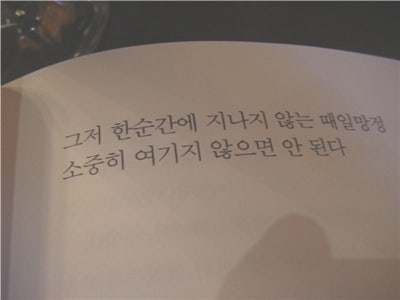 그저 한순간에 지나지 않는 때일망정
소중히 여기지 않으면 안 된다